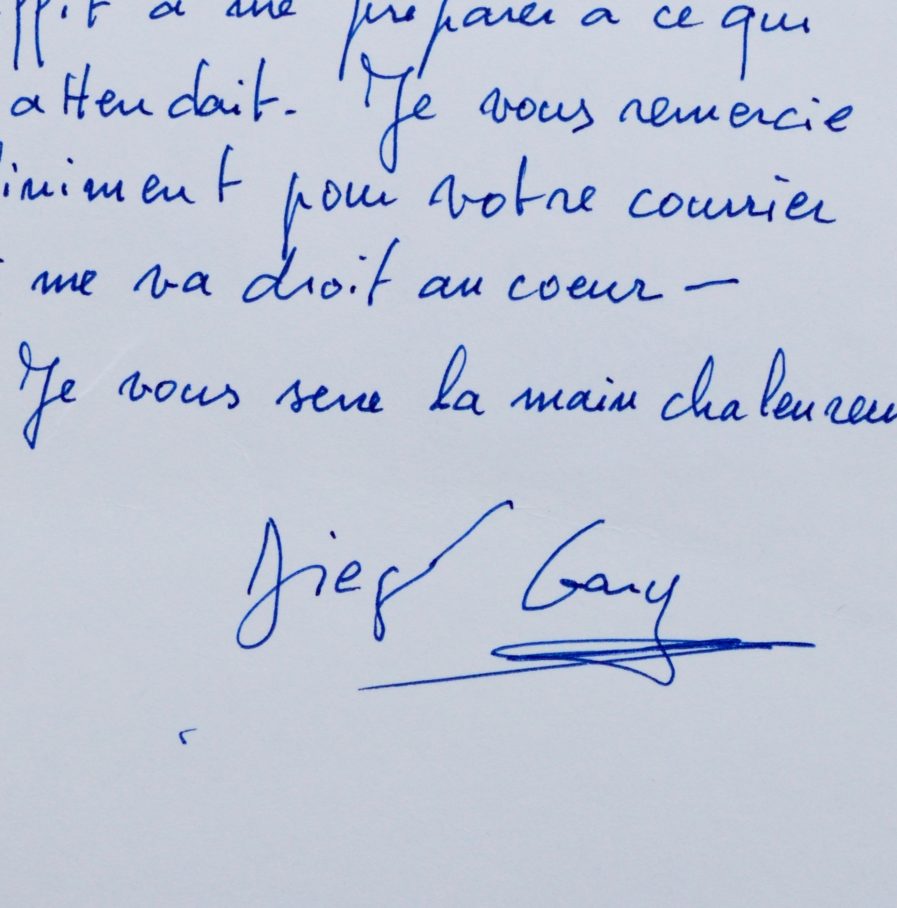 à me préparer à ce qui
attendait. Je vous remercie
iniment pour votre courrier
me va droit au coeur —
Je vous serre la main chaleureu
Diego Gary